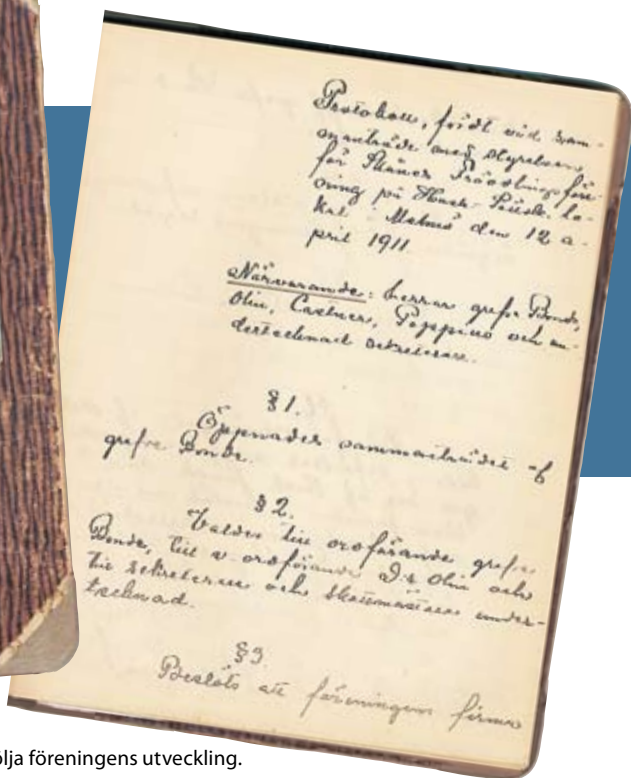 Protokoll, fördt vid sam-
manträde med styrelsen
för Skånes Fröodlingsföre-
ning på Hush. Sällsk. lo-
kal i Malmö den 12 a-
pril 1911.
Närvarande: herrar grefve Bonde,
Olin, Castner, Poppius och un-
dertecknad sekreterare.
§ 1.
Öppnades sammanträdet af
grefve Bonde.
§ 2.
Valdes till ordförande grefve
Bonde, till v. ordförande D:r Olin och
till sekreterare och skattmästare under-
tecknad.
§ 3
Beslöts att föreningens firma
ölja föreningens utveckling.